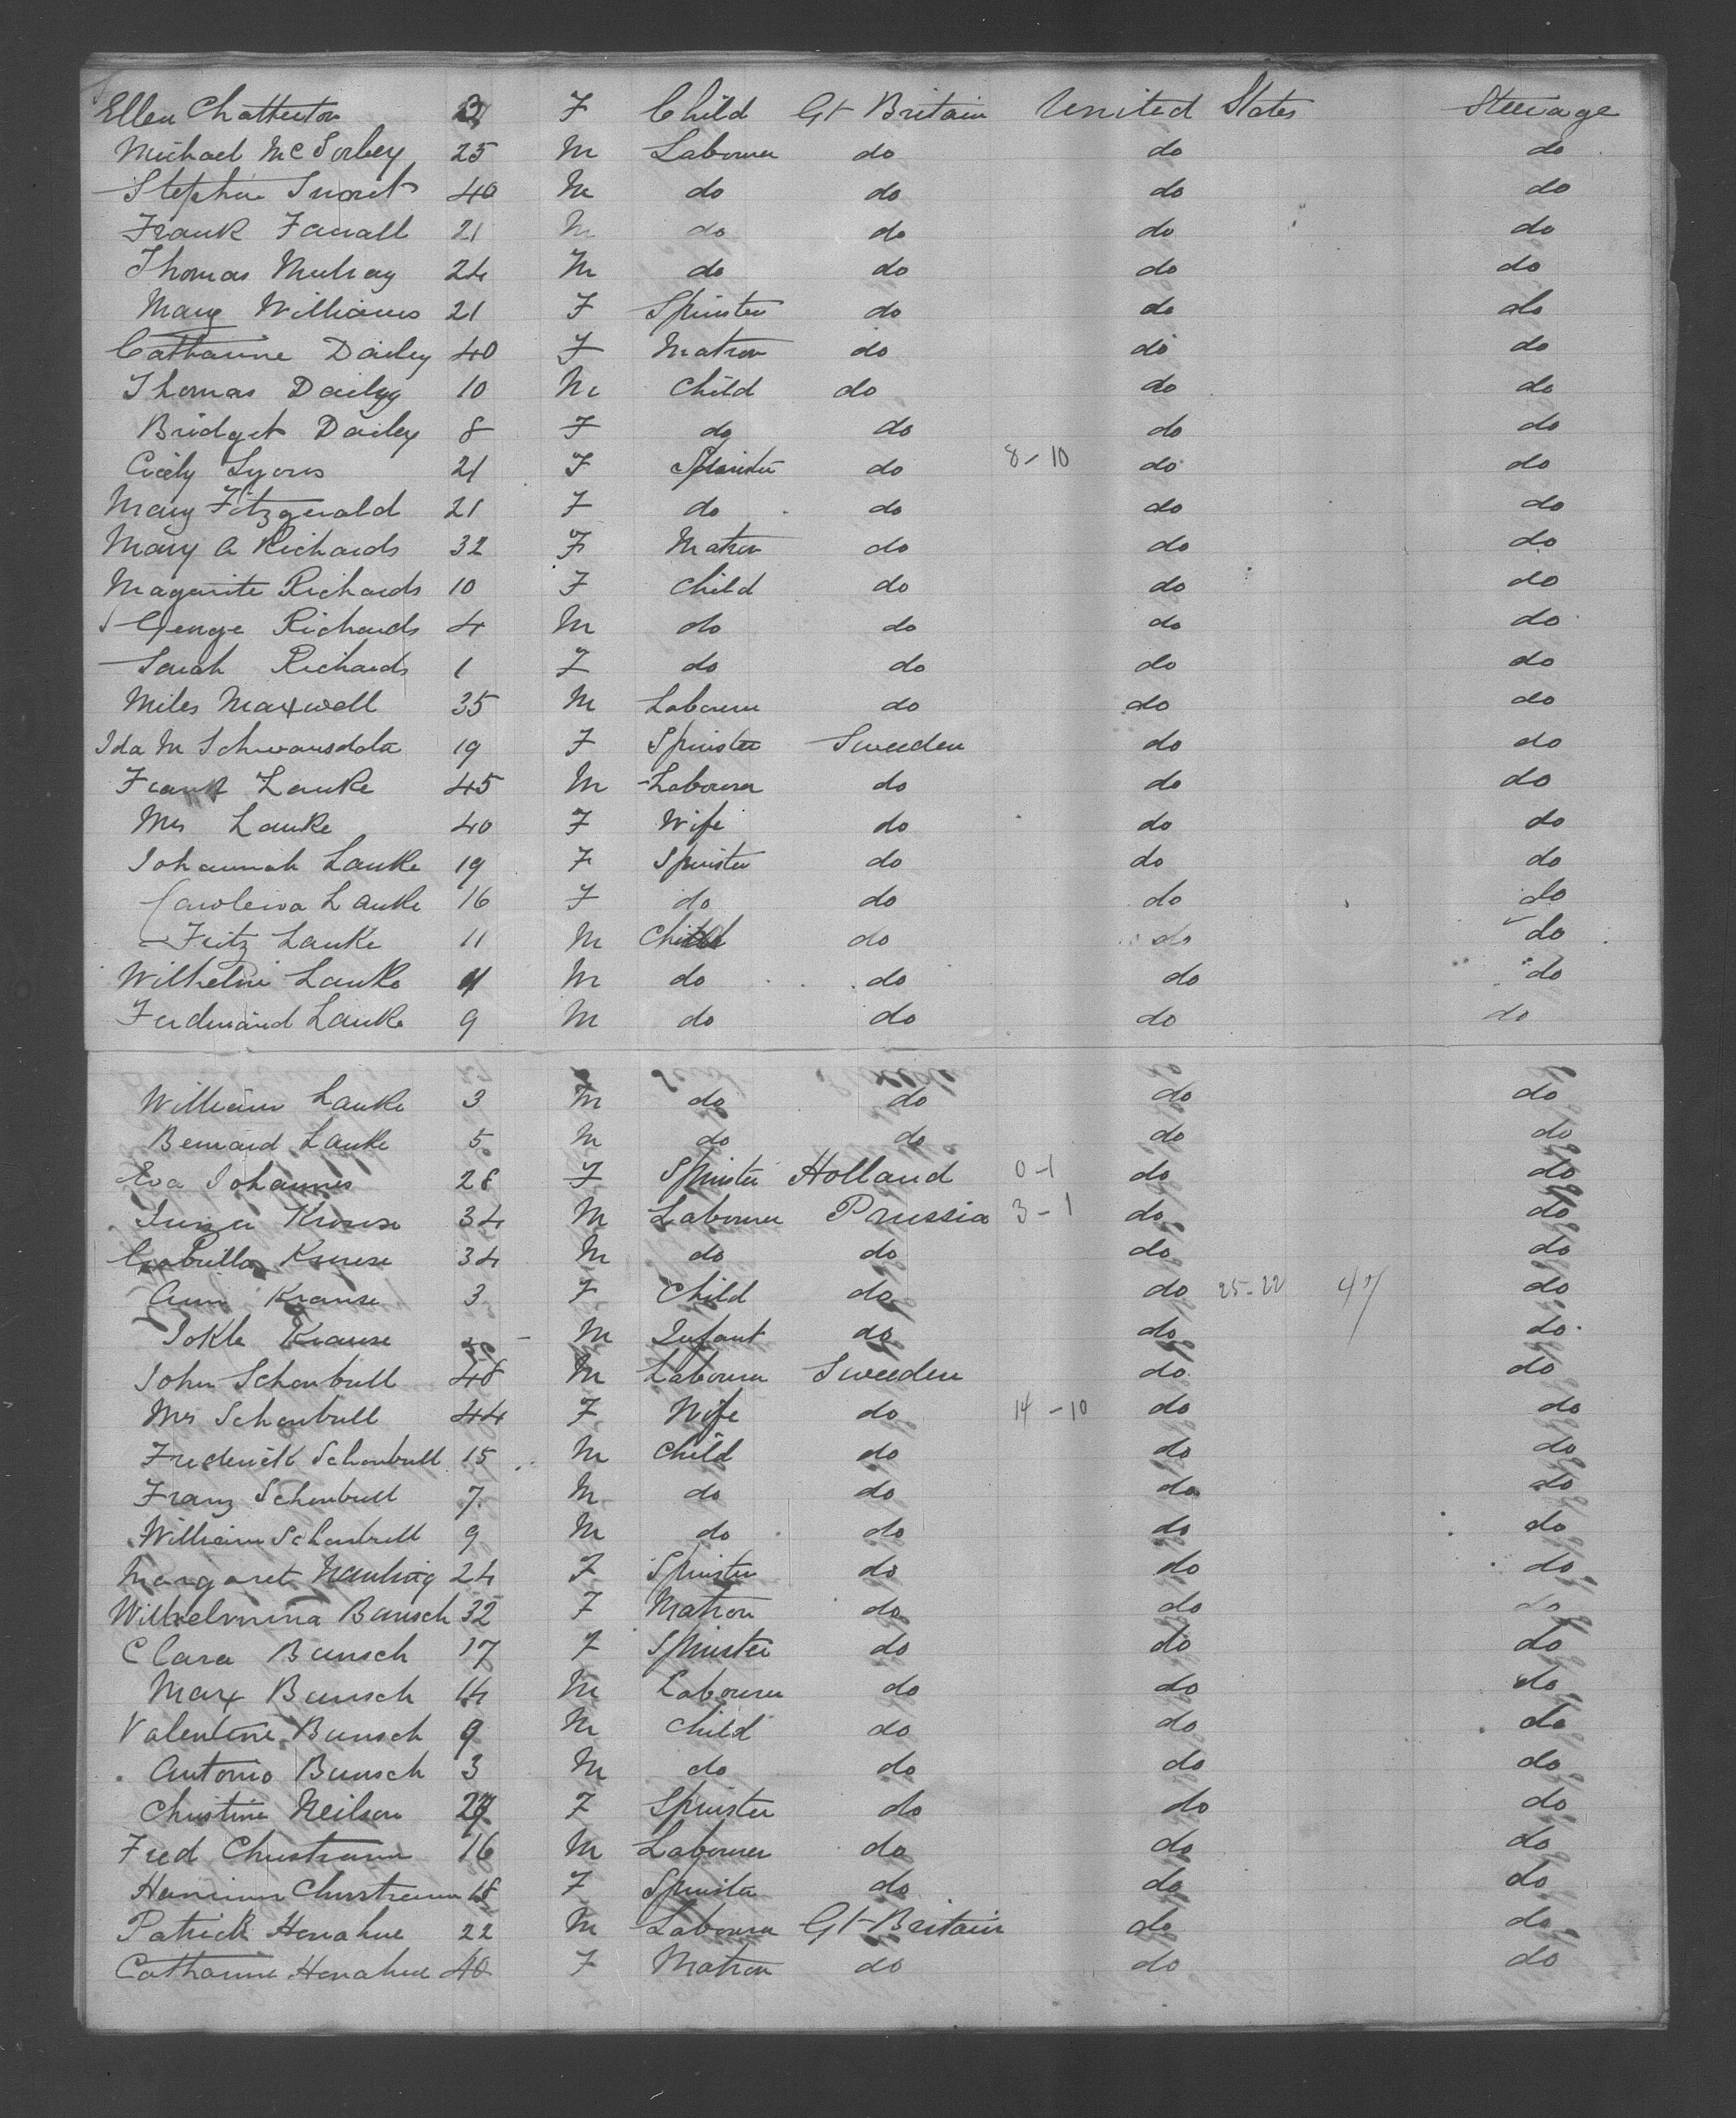 Ellen Chatterton 3 F Child Gt Britain United States Steerage
Michael McSorley 25 M Labourer do do do
Stephen 40 M do do do do
Frank Farrall 21 M do do do do
Thomas Mulray 24 M do do do do
Mary Williams 21 F Spinster do do do
Catharine Dailey 40 F Matron do do do
Thomas Dailey 10 M Child do do do
Bridget Dailey 8 F do do do do
Cicily Lyons 21 F Spinster do 8-10 do do
Mary Fitzgerald 21 F do do do do
Mary A Richards 32 F Matron do do do
Magarite Richards 10 F Child do do do
George Richards 4 M do do do do
Sarah Richards 1 F do do do do
Miles Maxwell 35 M Labourer do do do
Ida M 19 F Spinster Sweeden do do
Frank Lanke 45 M Labourer do do do
Mrs Lanke 40 F Wife do do do
Johannah Lanke 19 F Spinster do do do
Caroleina Lanke 16 F do do do do
Fritz Lanke 11 M Child do do do
Wilhelm Lanke M do do do do
Ferdinand Lanke 9 M do do do do
William Lanke 3 M do do do do
Bernard Lanke 5 M do do do do
Eva Johannes 28 F Spinster Holland 0-1 do do
Krause 34 M Labourer Prussia 3-1 do do
Krause 34 M do do do do
Ann Krause 3 F Child do do 25-22 47 do
Krause M Infant do do do
John Schonbull 48 M Labourer Sweeden do do
Mrs Schonbull 44 F Wife do 14-10 do do
Frederick Schonbull 15 M Child do do do
Franz Schonbull 7 M do do do do
William Schonbull 9 M do do do do
Margaret 24 F Spinster do do do
Wilhelmina Bunsch 32 F Matron do do do
Clara Bunsch 17 F Spinster do do do
Max Bunsch 14 M Labourer do do do
Valentine Bunsch 9 M Child do do do
Antonio Bunsch 3 M do do do do
Christine Neilson F Spinster do do do
Fred 16 M Labourer do do do
18 F Spinster do do do
Patrick Honahue 22 M Labourer Gt Britain do do
Catharine Honahue 40 F Matron do do do